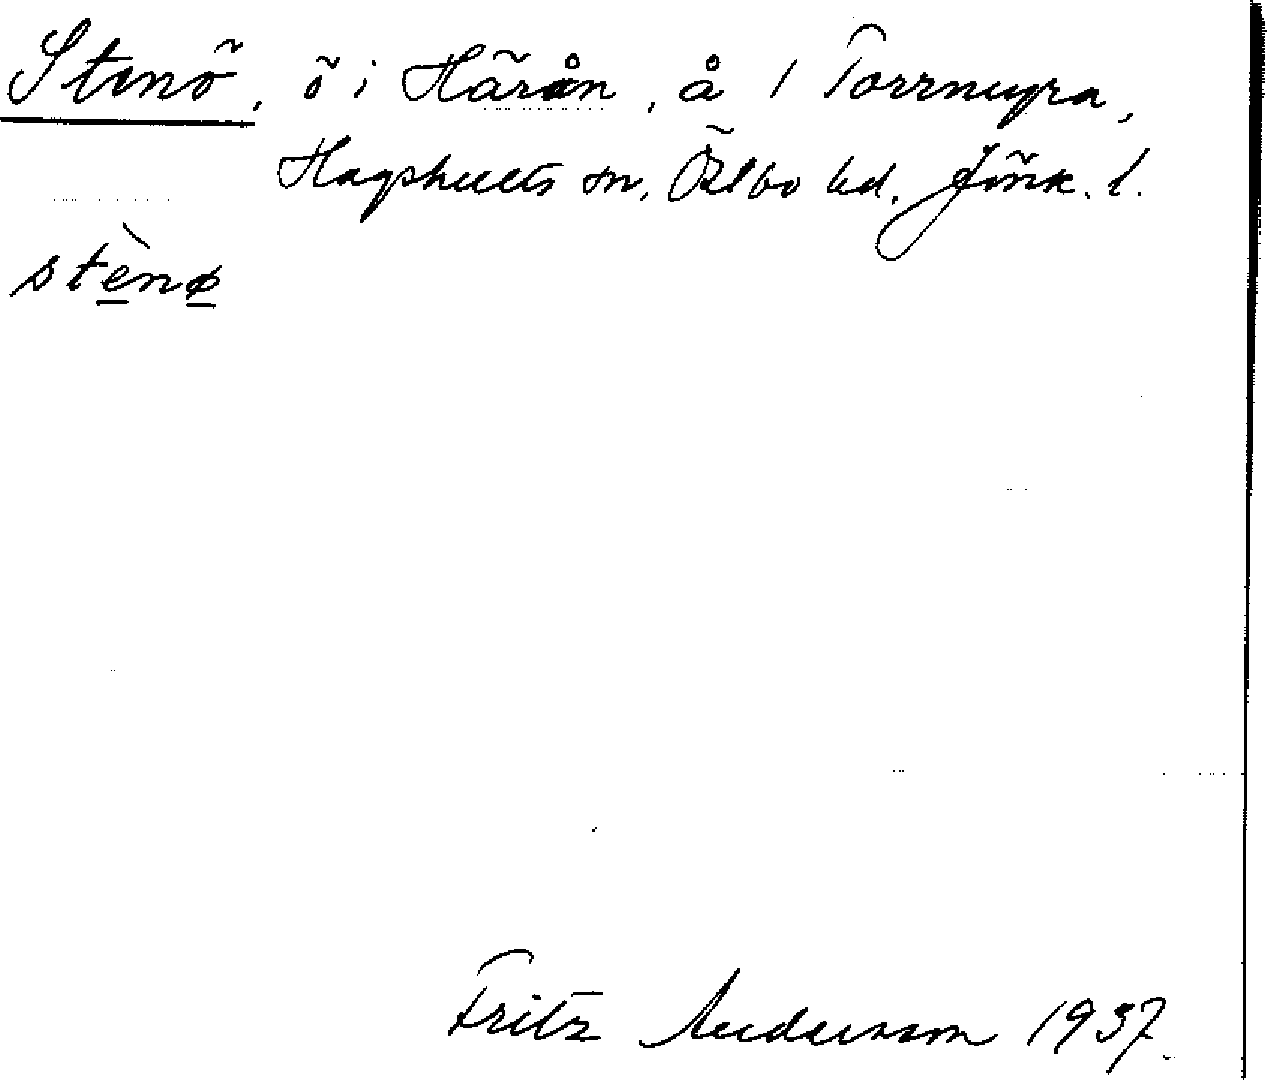 Stenö, ö i Härån, å i Torrmyra,
Hagshults sn, Östbo hd. Jönk. l.
stènø
Fritz Andersson 1937.